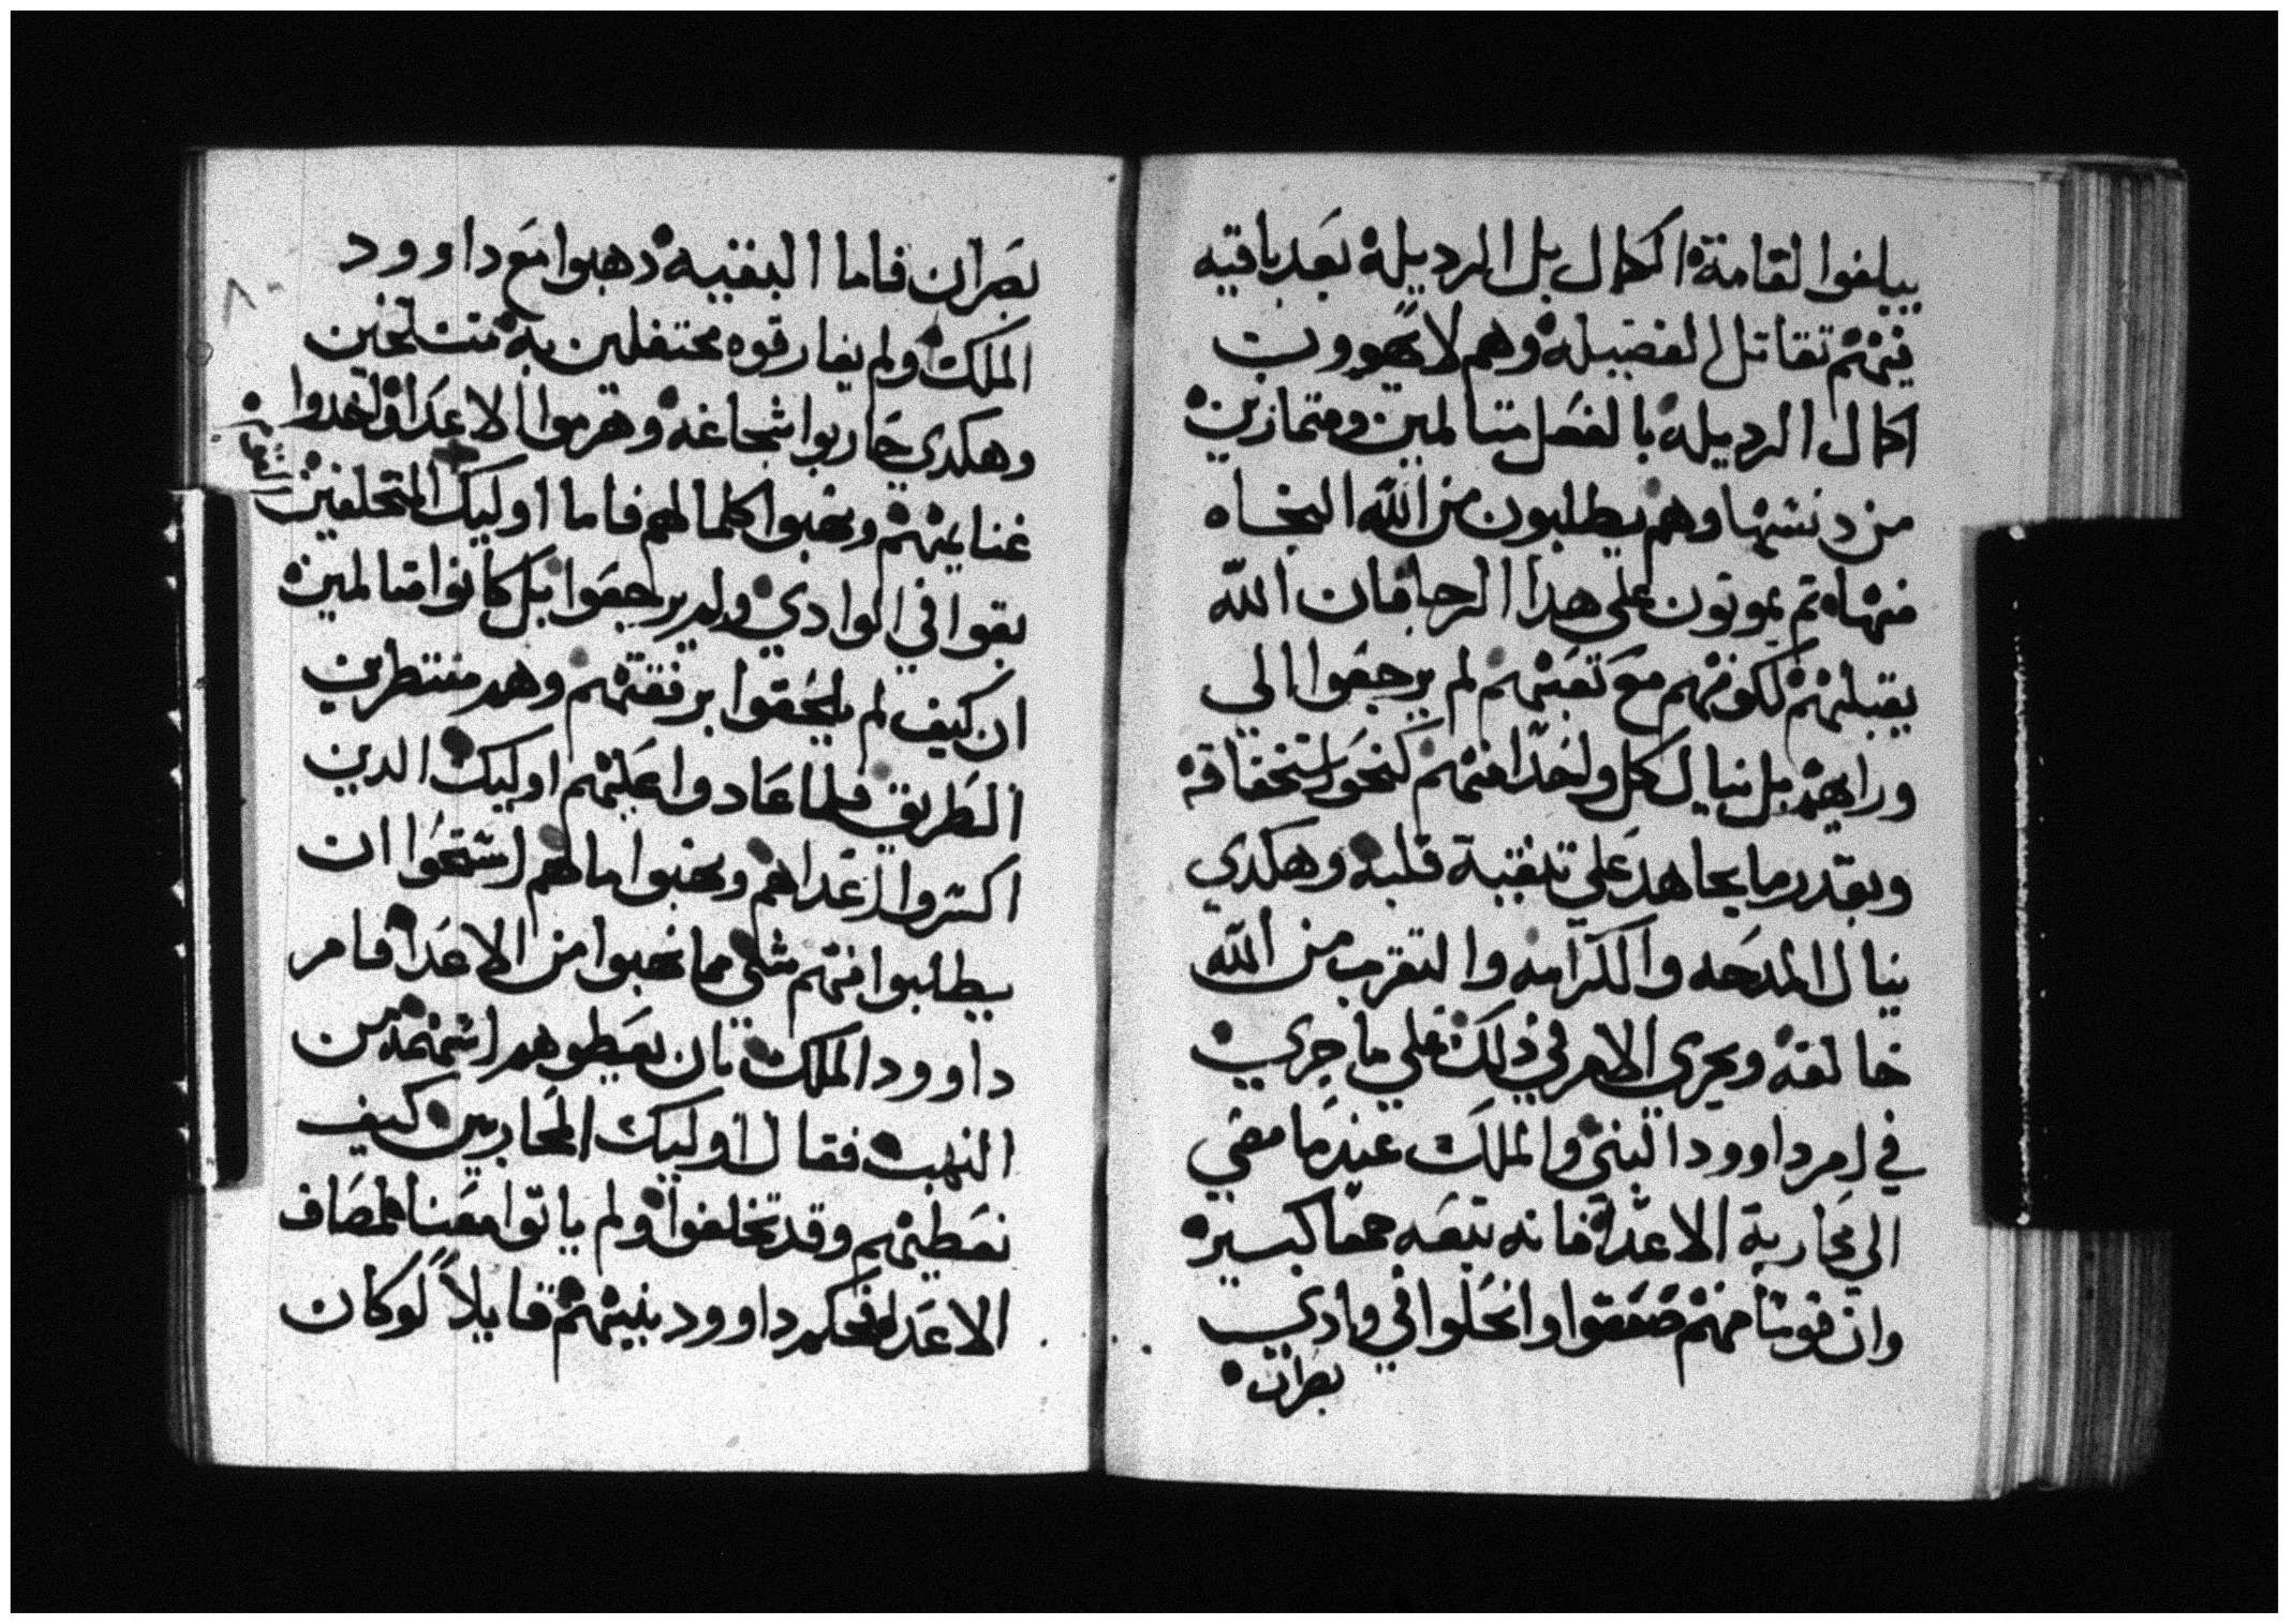 يبلغوا لقامة الكمال بل الرديلة بعد باقيه
فيهم تقاتل الفضيله وهم لا يهوون
اكمال الرديله بالفعل متالمين ومتمازين
من دنسها وهم يطلبون من الله النجاه
منها ثم يموتون على هذا الرجا فان الله
يقبلهم لكونهم مع تعبهم لم يرجعوا الي
ورايهم بل ينال كل واحدا منهم كنحو استحقاقه
وبقدر ما يجاهد علي تنقية قلبه وهكدي
ينال المدحه والكرامه والتقرب من الله
خالقه ويجري الامر في ذلك علي ما جري
في امر داوود النبي والملك عندما مضي
الي محاربة الاعدا فانه تبعه جمعا كبيره
وان قوما منهم ضعفوا وانحلوا في وادي
بصران
بصران فاما البقيه دهبوا مع داوود
الملك ولم يفارقوه محتفلين به متسلحين
وهكدي حاربوا بشجاعة وهزموا الاعدا واخدوا
غنايمهم ونهبوا كلما لهم فاما اوليك المتخلفين
بقوا في الوادي ولم يرجعوا بل كانوا متالمين
ان كيف لم يلحقوا برفقتهم وهم منتظرين
الطريق فلما عادوا عليهم اوليك الدين
اكسروا اعداهم ونهبوا مالهم استحوا ان
يطلبوا منهم شي مما نهبوا من الاعدا فامر
داوود الملك بان يعطوهم اسهمه من
النهب فقال اوليك المحاربين كيف
نعطيهم وقد تخلفوا ولم ياتوا معنا لمصاف
الاعدا فحكم داوود بينهم قايلاً لو كان